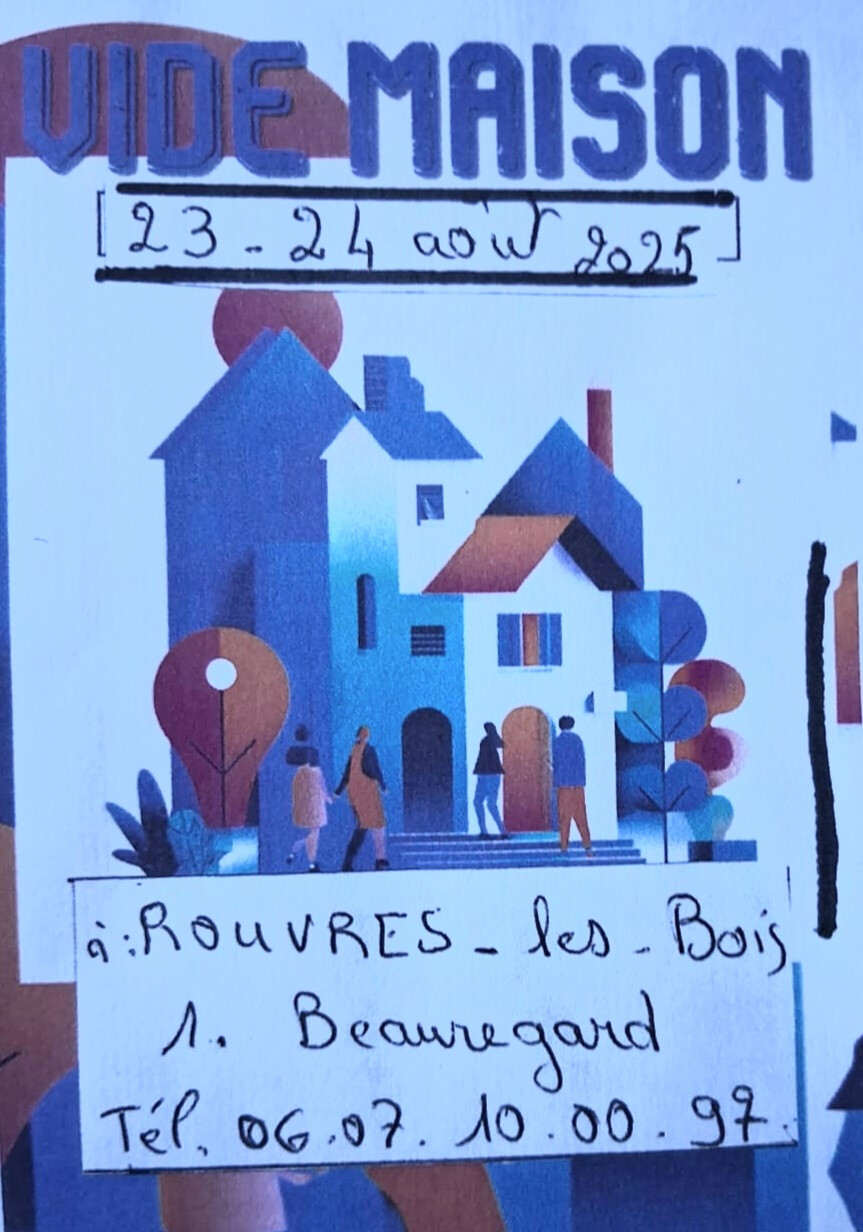 VIDE MAISON
[23 - 24 août 2025]
à: ROUVRES - les - Bois
1. Beauregard
Tél. 06.07.10.00.97.